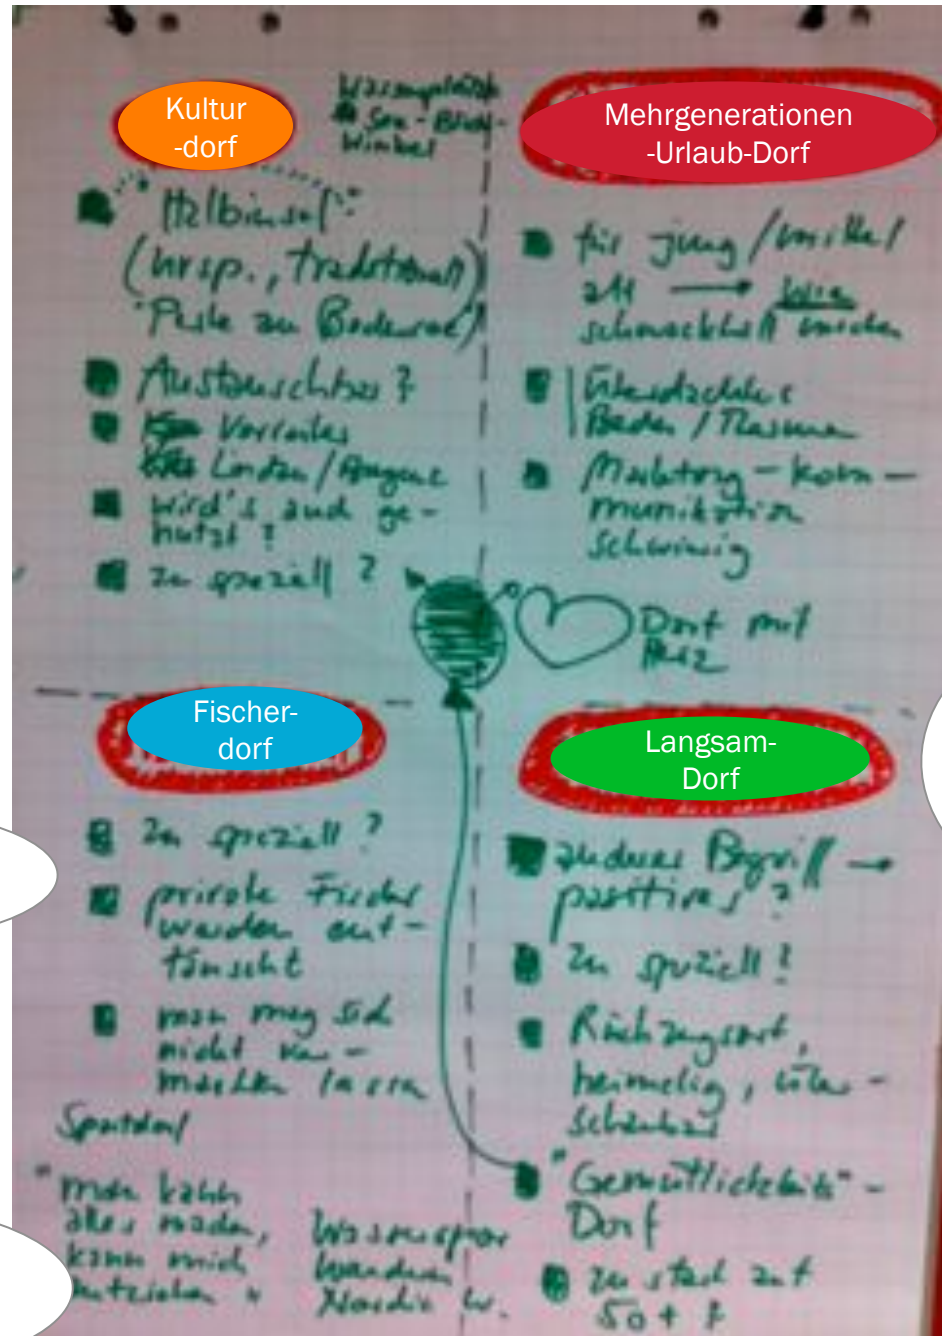 Kultur
-dorf
Wasserspielplatz
See-Blick-
Winkel
"Halbinsel"
(ursp., traditionell)
"Perle am Bodensee"
Austauschbar?
wird's auch ge-
nutzt?
zu speziell?
Mehrgenerationen
-Urlaub-Dorf
für jung/mittel/
alt → wie
schmackhaft machen
Überdachtes
Baden / Therme
Marketing-Kom-
munikation
schwierig
Dorf mit
Herz
Fischer-
dorf
zu speziell?
private Fischer
werden ent-
täuscht
man mag sich
nicht ver-
markten lassen
Sportdorf
"man kann
alles machen,
kann mich
entziehen"
Wassersport
Wandern
Nordic W.
Langsam-
Dorf
anderer Begriff →
positives?
zu speziell?
Rückzugsort,
heimelig, über-
schaubar
"Gemütlichkeits"-
Dorf
zu stark auf
50+?